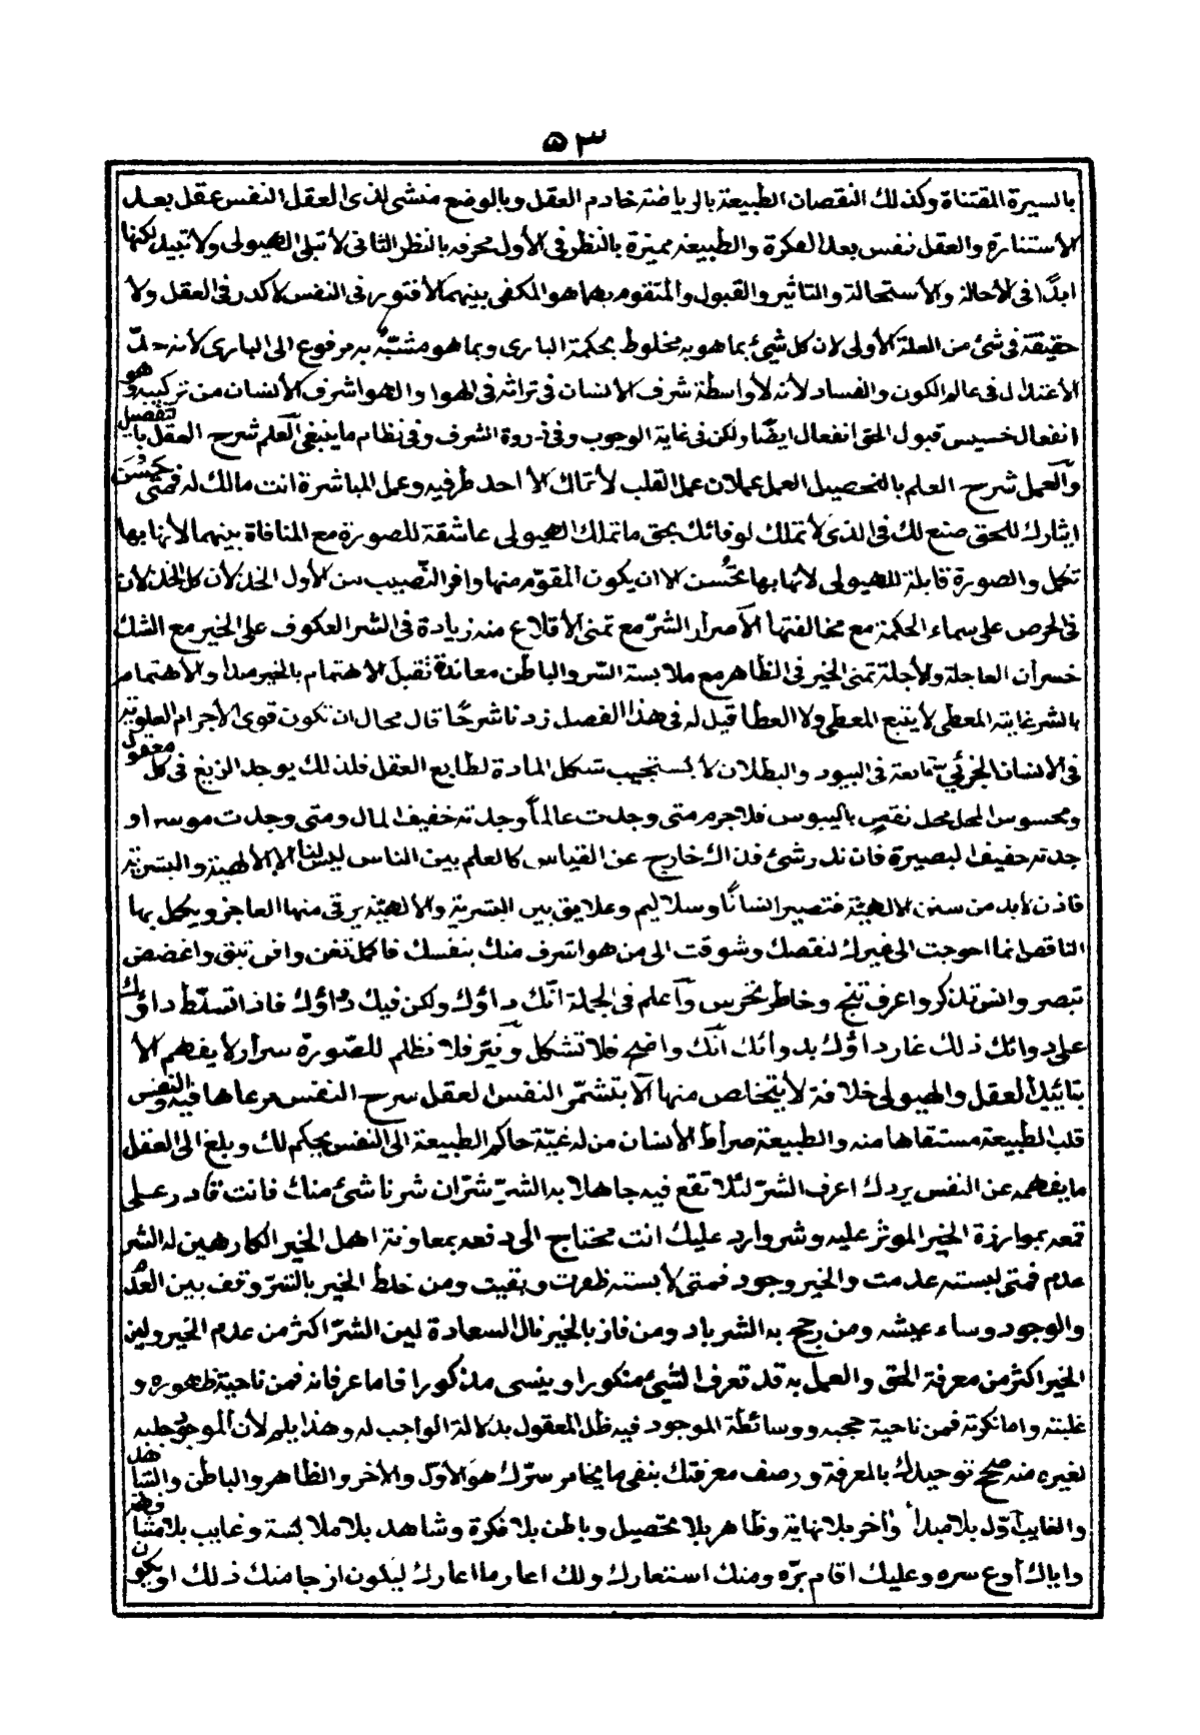 ٥٣
بالسيرة المقتناة وكذلك النقصان الطبيعة بالرياضة خادم العقل وبالوضع منشى لذى العقل النفس عقل بعد
الأستنارة والعقل نفس بعد الفكرة والطبيعة مميزة بالنظر فى الأول محرفه بالنظر الثانى لا تبلى الهيولى ولا تبيد لكنها
ابدًا فى الأحالة والأستحالة والتاثير والقبول والمتقوم بهما هو المكفى بينهما لا فتور فى النفس لا كدر فى العقل ولا
حقيقة فى شئ من العلة الأولى لان كل شئ بما هو به مخلوط بحكمة البارى وبما هو مشتبّه به مرفوع الى البارى لأنه حدّ
الأعتدال فى عالم الكون والفساد لأنه لا واسطة شرف الأنسان فى تراثه فى الهوا والهوا اشرف الأنسان من تركيبه وهو
انفعال خسيس قبول الحق انفعال ايضًا ولكن فى غاية الوجوب وفى ذروة الشرف وفى نظام ما ينبغى العلم شرح العقل بالتفصيل
والعمل شرح العلم بالتحصيل العمل عملان عمل القلب لا تملك الا احد طرفيه وعمل المباشرة انت مالك له فمتى حَسُنَ
ايثارك للحق صنع لك فى الذى لا تملك لوفائك بحق ما تملك الهيولى عاشقة للصورة مع المنافاة بينهما لأنها بها
تكمل والصورة قابلة للهيولى لأنها بها تحسُن الا ان يكون المقوّم منها وافر النّصيب من الأول الخذلان كل الخذلان
فى الحرص على سماء الحكمة مع مخالفتها الأصرار الشرّ مع تمنى الأقلاع منه زيادة فى الشر العكوف على الخير مع الشك
خسران العاجلة والأجلة تمنى الخير فى الظاهر مع ملابسة الشر والباطن معاندة نقبل الاهتمام بالخير مبدا والأهتمام
بالشر غايته المعطى لا يتبع المعطى ولا العطا قيل له فى هذا الفصل زدنا شرحًا قال محال ان تكون قوى الأجرام العلوية
فى الانسان الجزئى مانعة فى البيود والبطلان لا يستجيب تشكل المادة لطابع العقل فلذلك يوجد الزيغ فى كل معقول
ومحسوس المحل محل نقص باليبوس فلا جرم متى وجدت عالماً وجدته خفيف المال ومتى وجدت موسرا و
جدته خفيف البصيرة فان ندر شئ فذاك خارج عن القياس كالعلم بين الناس ليس لنا الا الالهية والبشرية
فاذن لا بد من سنن الالهيّة فتصير انسانًا وسلاليم وعلايق بين البشرية والالهيّة يرقى منها العاجز ويكمل بها
الناقص انما احوجت الى غيرك لنقصك وشوقت الى من هو اشرف منك بنفسك فاكمل تغن وافن تبق واغضض
تبصر وانس تذكر واعرف تنج وخاطر تحرس واعلم فى الجملة انّك داؤك ولكن فيك دواؤك فاذا تسلّط داؤك
على دوائك ذلك غار داؤك بدوائك انّك واضح فلا تشكل ونيّر فلا تظلم للصّورة سرار لا يفهم الا
بتائيد العقل والهيولى خلافة لا يتخلص منها الا بتشمّر النفس العقل سرح النفس مرعاها فيه والنفس
قلب الطبيعة مستقاها منه والطبيعة صراط الأنسان من له غيّة حاكم الطبيعة الى النفس يحكم لك وبلغ الى العقل
ما يفهمه عن النفس يردك اعرف الشرّ لئلا تقع فيه جاهلا به الشرّ شرّان شر ناشئ منك فانت قادر على
قمعه بمبارزة الخير الموثر عليه وشر وارد عليك انت محتاج الى دفعه بمعاونة اهل الخير الكارهين له الشر
عدم فمتى لبسته عدمت والخير وجود فمتى لابسته ظفرت وبقيت ومن خلط الخير بالشرّ وقف بين العدم
والوجود وساء عيشه ومن رجح به الشر باد ومن فاز بالخير نال السعادة ليس الشرّ اكثر من عدم الخير وليس
الخير اكثر من معرفة الحق والعمل به قد تعرف الشئ منكورا وينسى مذكورا فاما عرفانه فمن ناحية ظهوره و
غلبته واما نكرته فمن ناحية حجبه ووسائطه الموجود فيه ظل المعقول بدلالة الواجب له وهذا يلم لأن الموجود جلبه
لغيره منه صحح توحيدك بالمعرفة ورصف معرفتك بنفى ما يخامر سرّك هو الأوّل والأخر والظاهر والباطن والشاهد
والغايب أوّل بلا مبدأ وأخر بلا نهاية وظاهر بلا تحصيل وباطن بلا فكرة وشاهد بلا ملابسة وغايب بلا مشافهة
واياك أوع سره وعليك اقام برّه ومنك استعارك ولك اعار ما اعارك ليكون ازجا منك ذلك او يكون